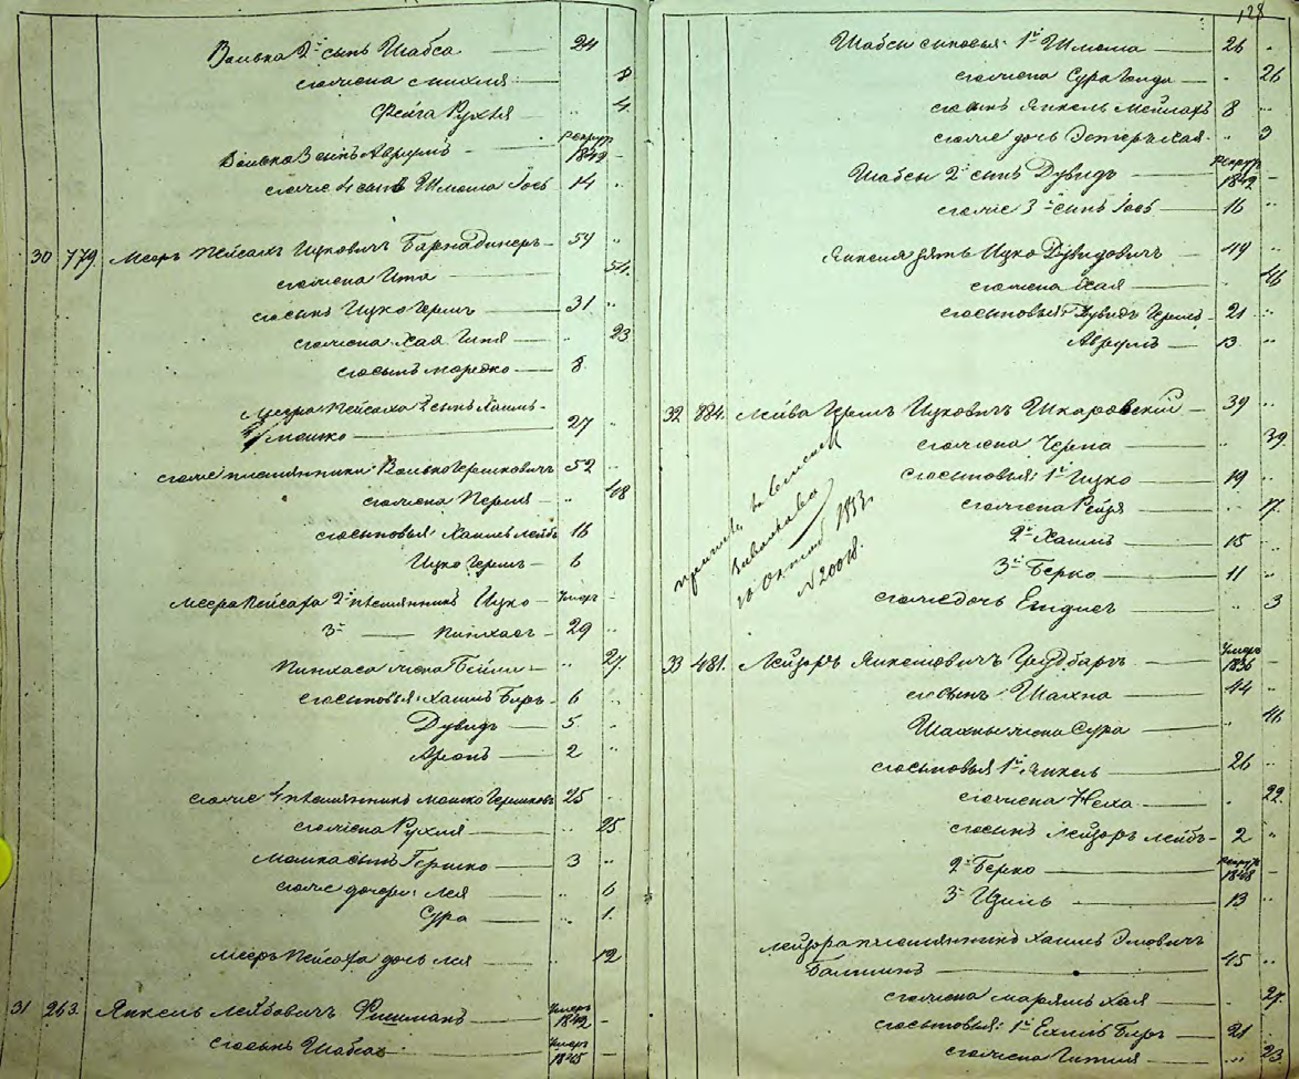 Волька 2й сынъ Шабса — 24
его жена 8
Фейга Рухля 4
Волька 3 сынъ Аврумъ — рекрут 1849 -
его же 4 сынъ Шлiома Iосъ 14
30 779. Мееръ Пейсахъ Ицковичъ — 54
его жена Ита — 54.
его сынъ Ицко Гершъ — 31
его жена Хая — 23
его сынъ Мордко — 8
Меера Пейсаха 2 сынъ Хаимъ-
Мошко — 27
его же племянники: Волько Гершковичъ 52
его жена Перля — 48
его сыновья: Хаимъ Лейбъ 16
Ицко Гершъ — 6
Меера Пейсаха 2й племянникъ Ицко — умеръ -
3й — Пинхасъ — 29
Пинхаса жена Бейля — 27.
его сыновья: Хаимъ Беръ — 6
Дувидъ — 5
Аронъ — 2
его же 4 племянникъ Мошко Гершковъ 25
его жена Рухля — 25
Мошка сынъ Гершко — 3
его же дочери: Лея — 6
Сура — 1
Меера Пейсаха дочь Лея — 12
31 263. Янкель Лейбовичъ Фишманъ — умеръ 1849 -
его сынъ Шабса — умеръ 1845 -
128
Шабсы сыновья: 1й Шлiома — 26
его жена Сура — 26
его сынъ Янкель 8
его же дочь Эстеръ Хая 3
Шабсы 2й сынъ Дувидъ — рекрут 1849 -
его же 3й сынъ Iосъ — 16
Янкеля зять Ицко Дувидовичъ — 49
его жена Хая — 46
его сыновья: Дувидъ Гершъ — 21
Аврумъ — 13
32 884. Лейба Гершъ Ицковичъ Шкаровскiй — 39
его жена Черна — 39.
его сыновья: 1й Ицко — 19
его жена Рейзя — 17.
2й Хаимъ — 15
3й Берко — 11
его же дочь — 3
1853
№ 20018.
33 481. Лейзоръ Янкелювичъ — умеръ 1836 -
его сынъ Шахна — 44
Шахны жена Сура — 46
его сыновья 1й Янкель — 26
его жена Неха — 22
его сынъ Лейзоръ Лейбъ — 2
2й Берко — рекрут 1848 -
3й — 13
Лейзора племянникъ Хаимъ
— 45
его жена Марьямъ Хая — 27.
его сыновья: 1й Беръ — 21
его жена Гитля — 23